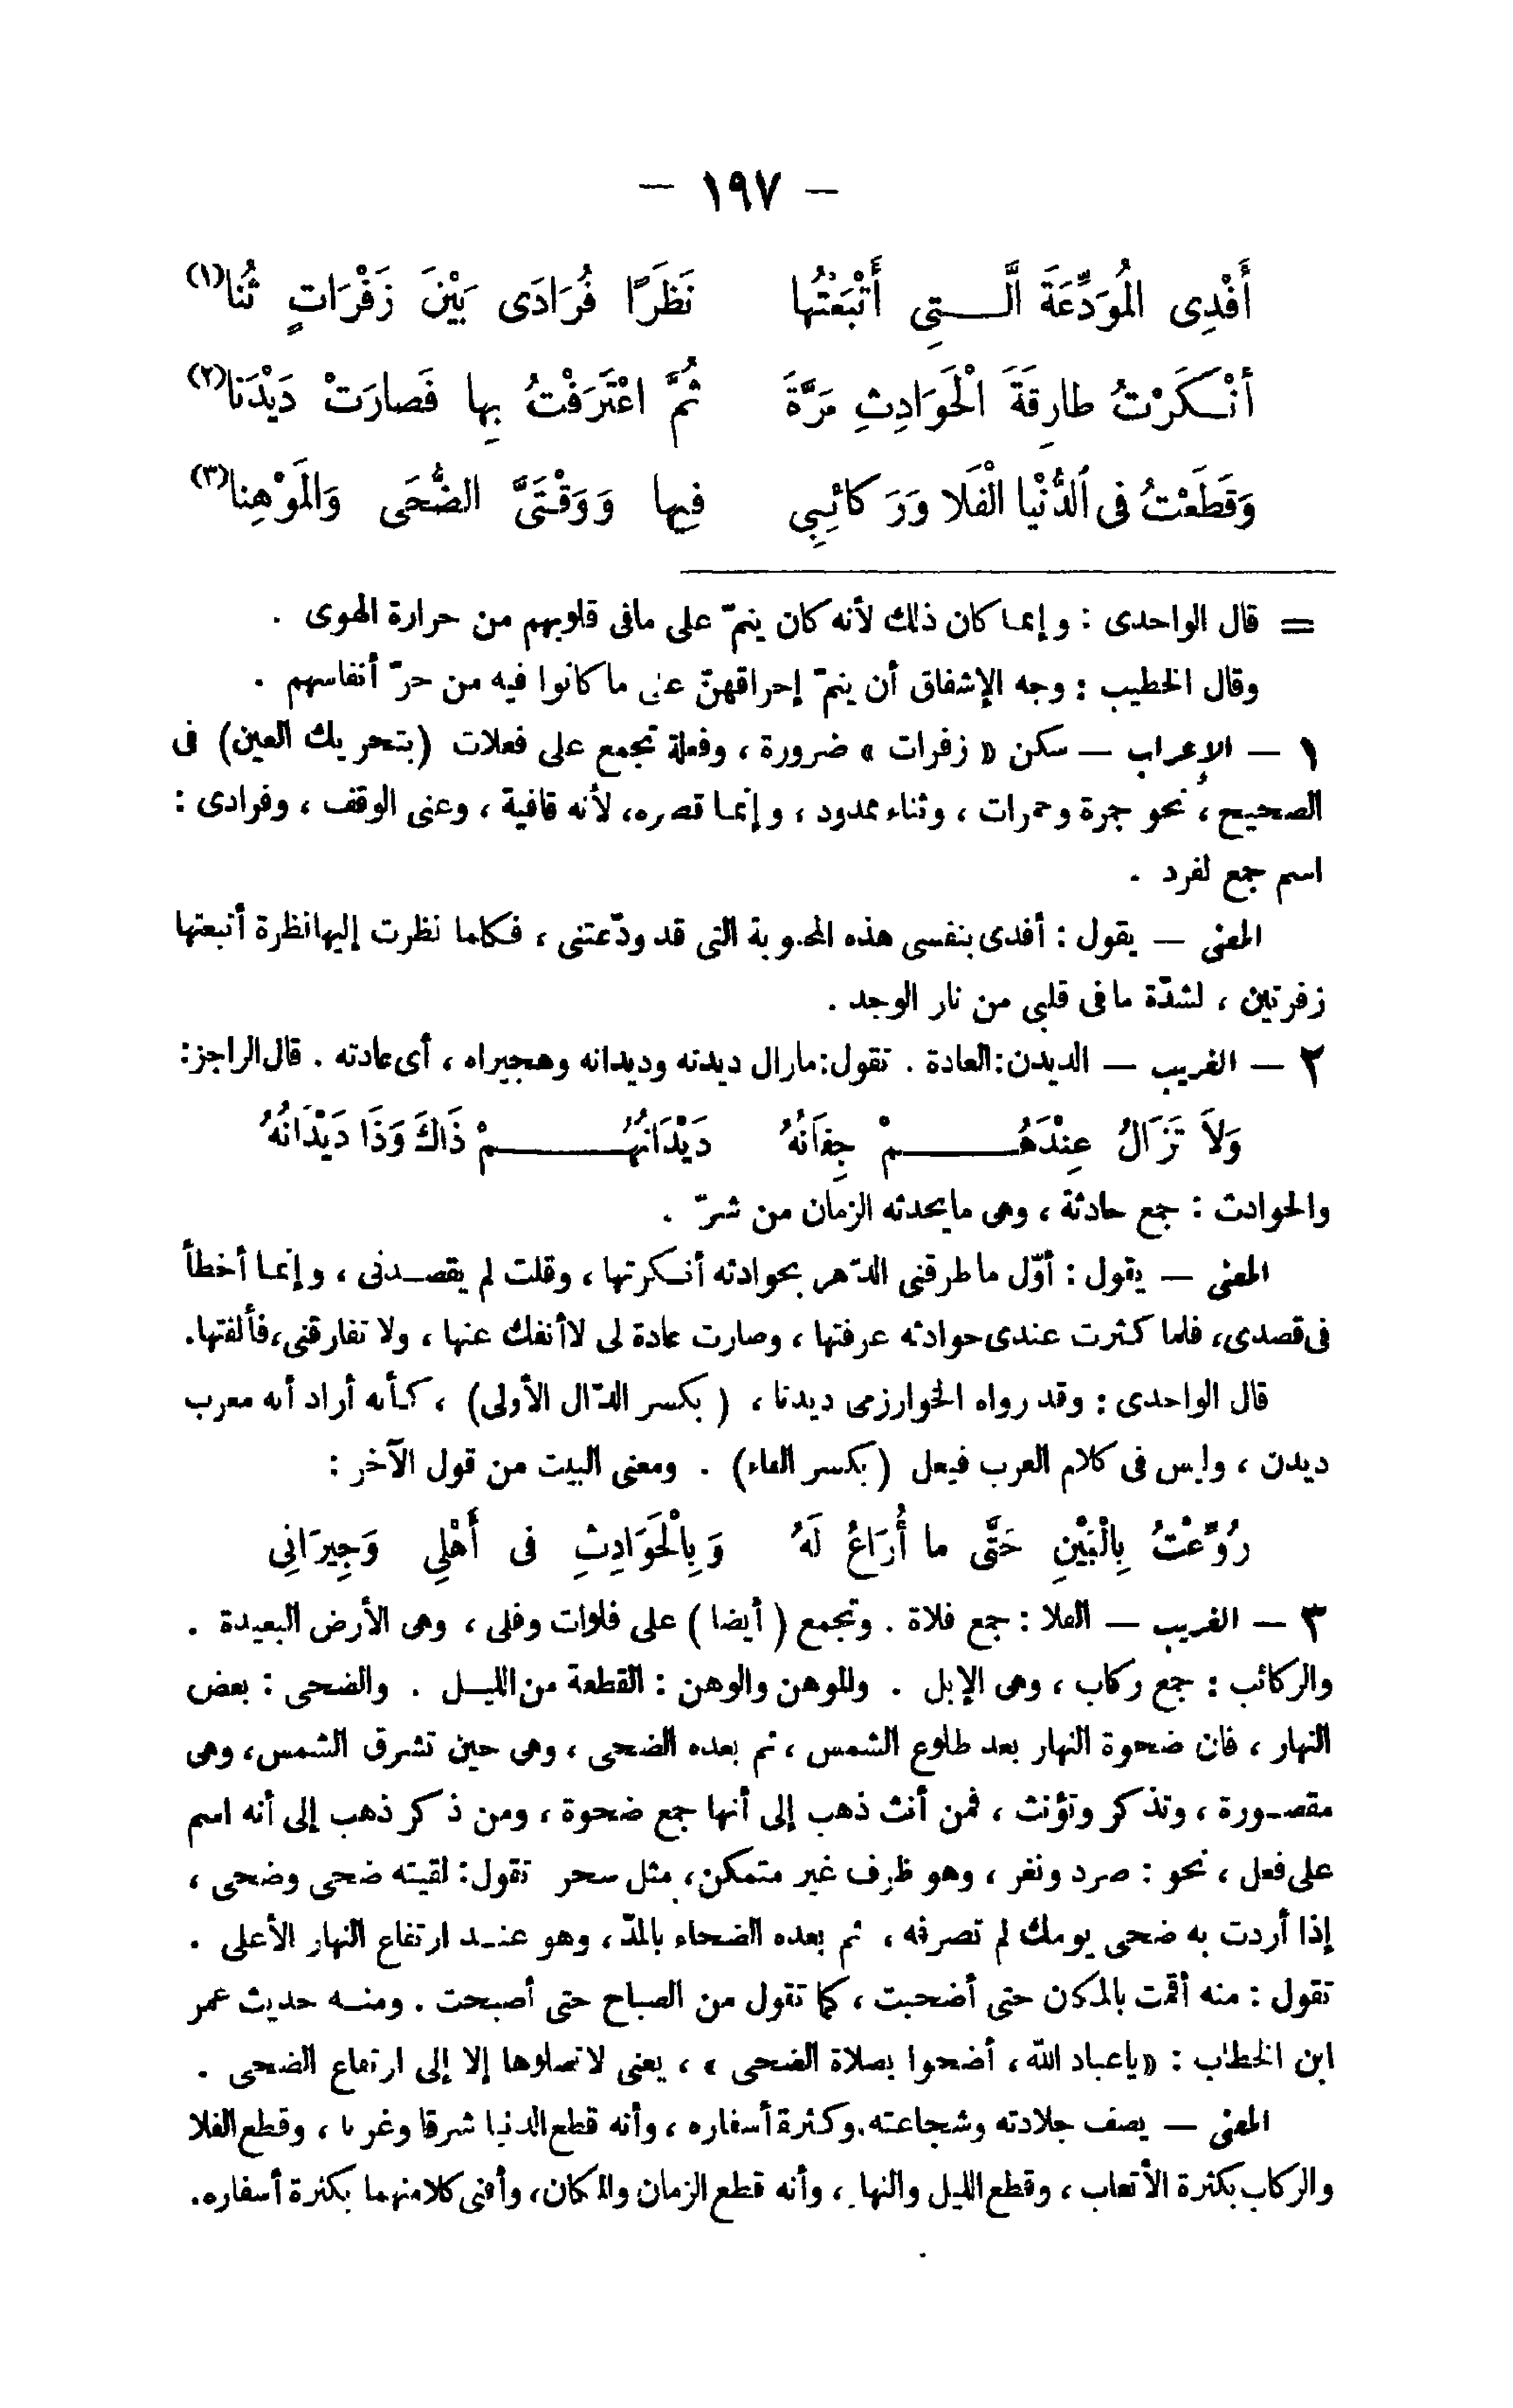 — ١٩٧ —
أَفْدِى الْمُوَدِّعَةَ الَّـــتِى أَتْبَعْتُها نَظَرًا فُرَادَى بَيْنَ زَفْرَاتٍ ثُنا(١)
أنْـكَرْتُ طارِقَةَ الْحَوَادِثِ مَرَّةً ثُمَّ اعْتَرَفْتُ بِها فَصارَتْ دَيْدَنا(٢)
وَقَطَعْتُ فى الدُّنْيا الْفَلا وَرَكائِبِى فِيها وَوَقْتَىَّ الضُّحَى وَالْمَوْهِنا(٣)
= قال الواحدى : وإنما كان ذلك لأنه كان ينمّ على مافى قلوبهم من حرارة الهوى .
وقال الخطيب : وجه الإشفاق أن ينمّ إحراقهنّ على ما كانوا فيه من حرّ أنفاسهم .
١ — الإعراب — سكن « زفرات » ضرورة ، وفعلة تجمع على فعلات (بتحريك العين) فى
الصحيح ، نحو جمرة وجمرات ، وثناء ممدود ، وإنما قصره، لأنه قافية ، وعنى الوقف ، وفرادى :
اسم جمع لفرد .
المعنى — يقول : أفدى بنفسى هذه المحبوبة التى قد ودّعتنى ، فكلما نظرت إليها نظرة أتبعتها
زفرتين ، لشدّة ما فى قلبى من نار الوجد .
٢ — الغريب — الديدن:العادة . تقول:مازال ديدنه وديدانه وهجيراه ، أى عادته . قال الراجز:
وَلاَ تَزَالُ عِنْدَهُـــــمْ جِفانُهُ دَيْدَانُهُـــــمْ ذَاكَ وَذَا دَيْدَانُهُ
والحوادث : جمع حادثة ، وهى مايحدثه الزمان من شرّ .
المعنى — يقول : أوّل ما طرقنى الدّهر بحوادثه أنـكرتها ، وقلت لم يقصـدنى ، وإنما أخطأ
فى قصدى، فلما كثرت عندى حوادثه عرفتها ، وصارت عادة لى لا أنفك عنها ، ولا تفارقنى،فألفتها.
قال الواحدى : وقد رواه الخوارزمى ديدنا ، ( بكسر الدّال الأولى) ، كـأنه أراد أنه معرب
ديدن ، وليس فى كلام العرب فيعل (بكسر الفاء) . ومعنى البيت من قول الآخر :
رُوِّعْتُ بِالْبَيْنِ حَتَّى ما أُرَاعُ لَهُ وَبِالْحَوَادِثِ فى أَهْلِي وَجِيرَانِى
٣ — الغريب — الفلا : جمع فلاة . وتجمع ( أيضا ) على فلوات وفلى ، وهى الأرض البعيدة .
والركائب : جمع ركاب ، وهى الإبل . والموهن والوهن : القطعة من الليـل . والضحى : بعض
النهار ، فان ضحوة النهار بعد طلوع الشمس ، ثم بعده الضحى ، وهى حين تشرق الشمس، وهى
مقصـورة ، وتذكر وتؤنث ، فمن أنث ذهب إلى أنها جمع ضحوة ، ومن ذكر ذهب إلى أنه اسم
على فعل ، نحو : صرد ونغر ، وهو ظرف غير متمكن، مثل سحر تقول: لقيته ضحى وضحى ،
إذا أردت به ضحى يومك لم تصرفه ، ثم بعده الضحاء بالمدّ ، وهو عنـد ارتفاع النهار الأعلى .
تقول : منه أقمت بالمكان حتى أضحيت ، كما تقول من الصباح حتى أصبحت . ومنـه حديث عمر
ابن الخطاب : «ياعباد الله ، أضحوا بصلاة الضحى » ، يعنى لا تصلوها إلا إلى ارتفاع الضحى .
المعنى — يصف جلادته وشجاعته.وكثرة أسفاره ، وأنه قطع الدنيا شرقا وغربا ، وقطع الفلا
والركاب بكثرة الأتعاب ، وقطع الليل والنهار ، وأنه قطع الزمان والمكان، وأفنى كلا منهما بكثرة أسفاره.